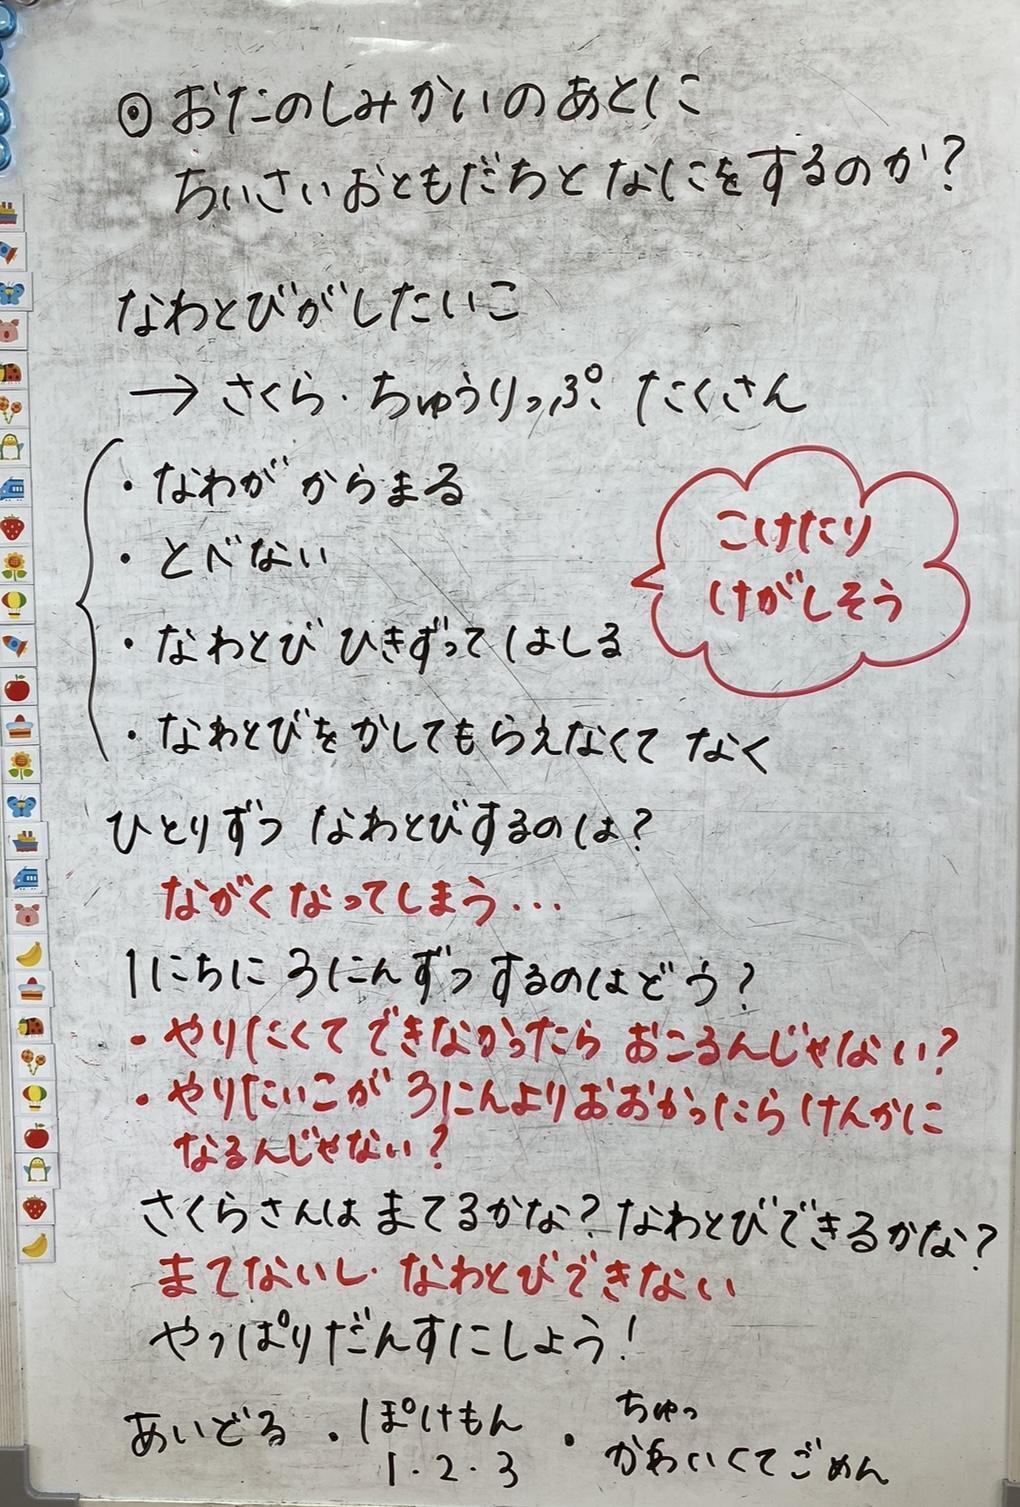 ◎ おたのしみかいのあとに
ちいさいおともだちと なにをするのか?
なわとびがしたいこ
→ さくら・ちゅうりっぷ たくさん
・なわが からまる
・とべない
・なわとび ひきずって はしる
・なわとびを かしてもらえなくて なく
こけたり
けがしそう
ひとりずつ なわとびするのは?
ながく なってしまう...
1にちに 3にんずつ するのはどう?
・やりたくて できなかったら おこるんじゃない?
・やりたいこが 3にんよりおおかったら けんかに
なるんじゃない?
さくらさんは まてるかな? なわとびできるかな?
まてないし・なわとびできない
やっぱりだんすにしよう!
あいどる ・ぽけもん
1・2・3
・ちゅっ
かわいくてごめん